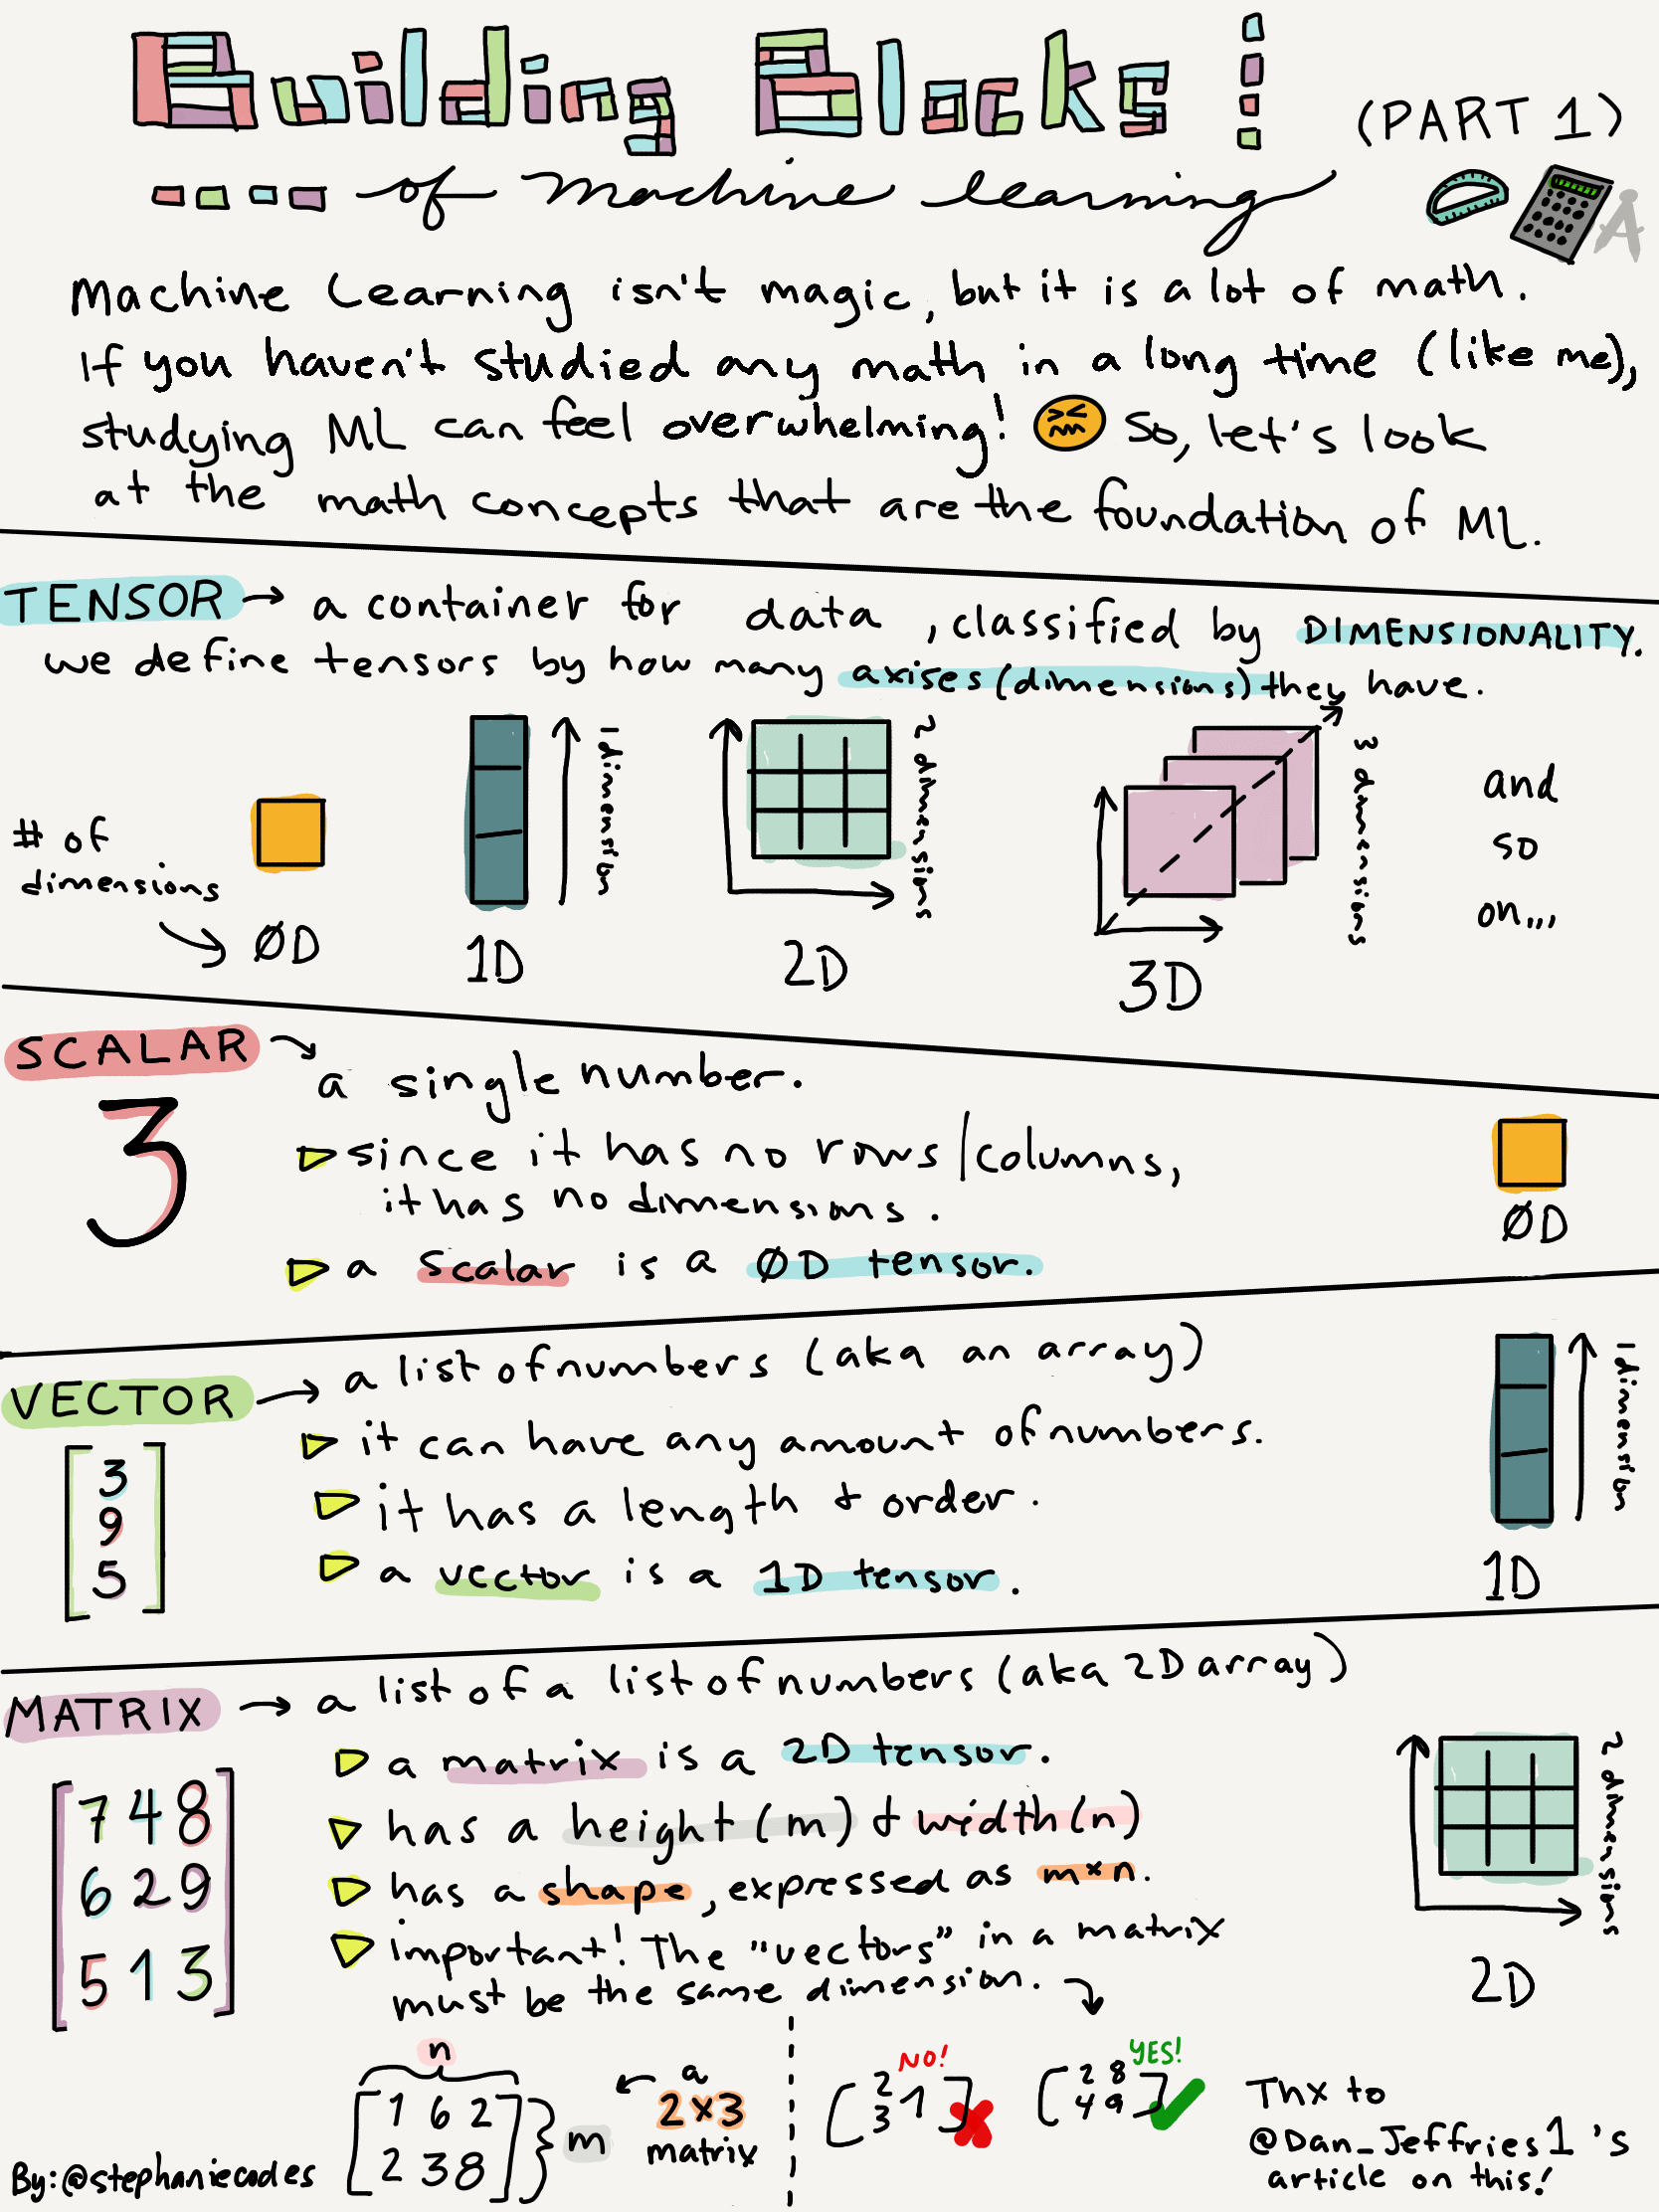 Building Blocks (PART 1)
of machine learning
Machine Learning isn't magic, but it is a lot of math.
If you haven't studied any math in a long time (like me),
studying ML can feel overwhelming! So, let's look
at the math concepts that are the foundation of ML.
TENSOR → a container for data, classified by DIMENSIONALITY.
we define tensors by how many axises (dimensions) they have.
# of
dimensions
ØD
1 dimension
1D
2 dimensions
2D
3 dimensions
3D
and
so
on...
SCALAR → a single number.
3
since it has no rows/columns,
it has no dimensions.
a scalar is a ØD tensor.
ØD
VECTOR → a list of numbers (aka an array)
3
9
5
it can have any amount of numbers.
it has a length + order.
a vector is a 1D tensor.
1 dimension
1D
MATRIX → a list of a list of numbers (aka 2D array)
7 4 8
6 2 9
5 1 3
a matrix is a 2D tensor.
has a height (m) + width (n)
has a shape, expressed as m×n.
important! The "vectors" in a matrix
must be the same dimension.
2 dimensions
2D
n
1 6 2
2 3 8
m
a
2x3
matrix
NO!
2 1
3
YES!
2 8
4 9
Thx to
@Dan_Jeffries1's
article on this!
By: @stephaniecodes